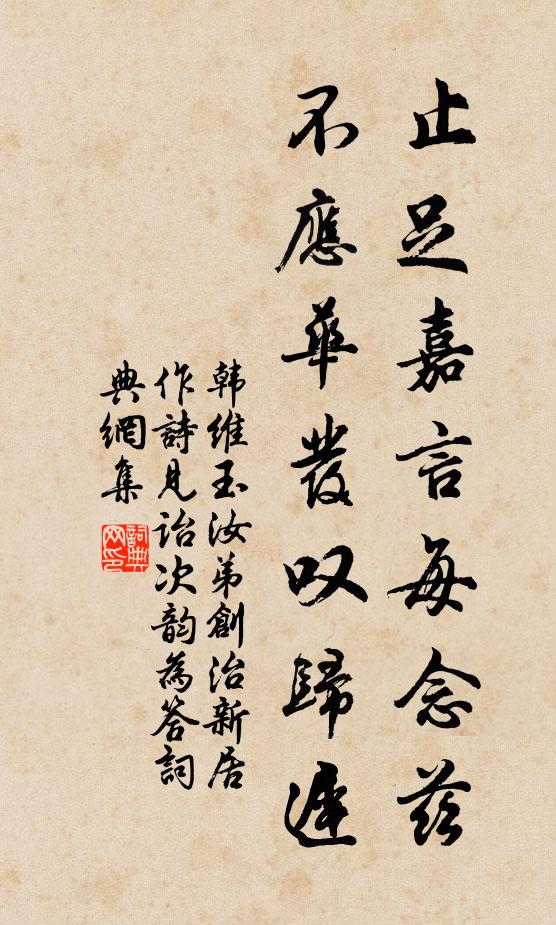 止足嘉言每念茲
不應華發叹歸遲
韩維玉汝弟創治新居
作詩見詒次韵為答詞
典網集
詞典网印